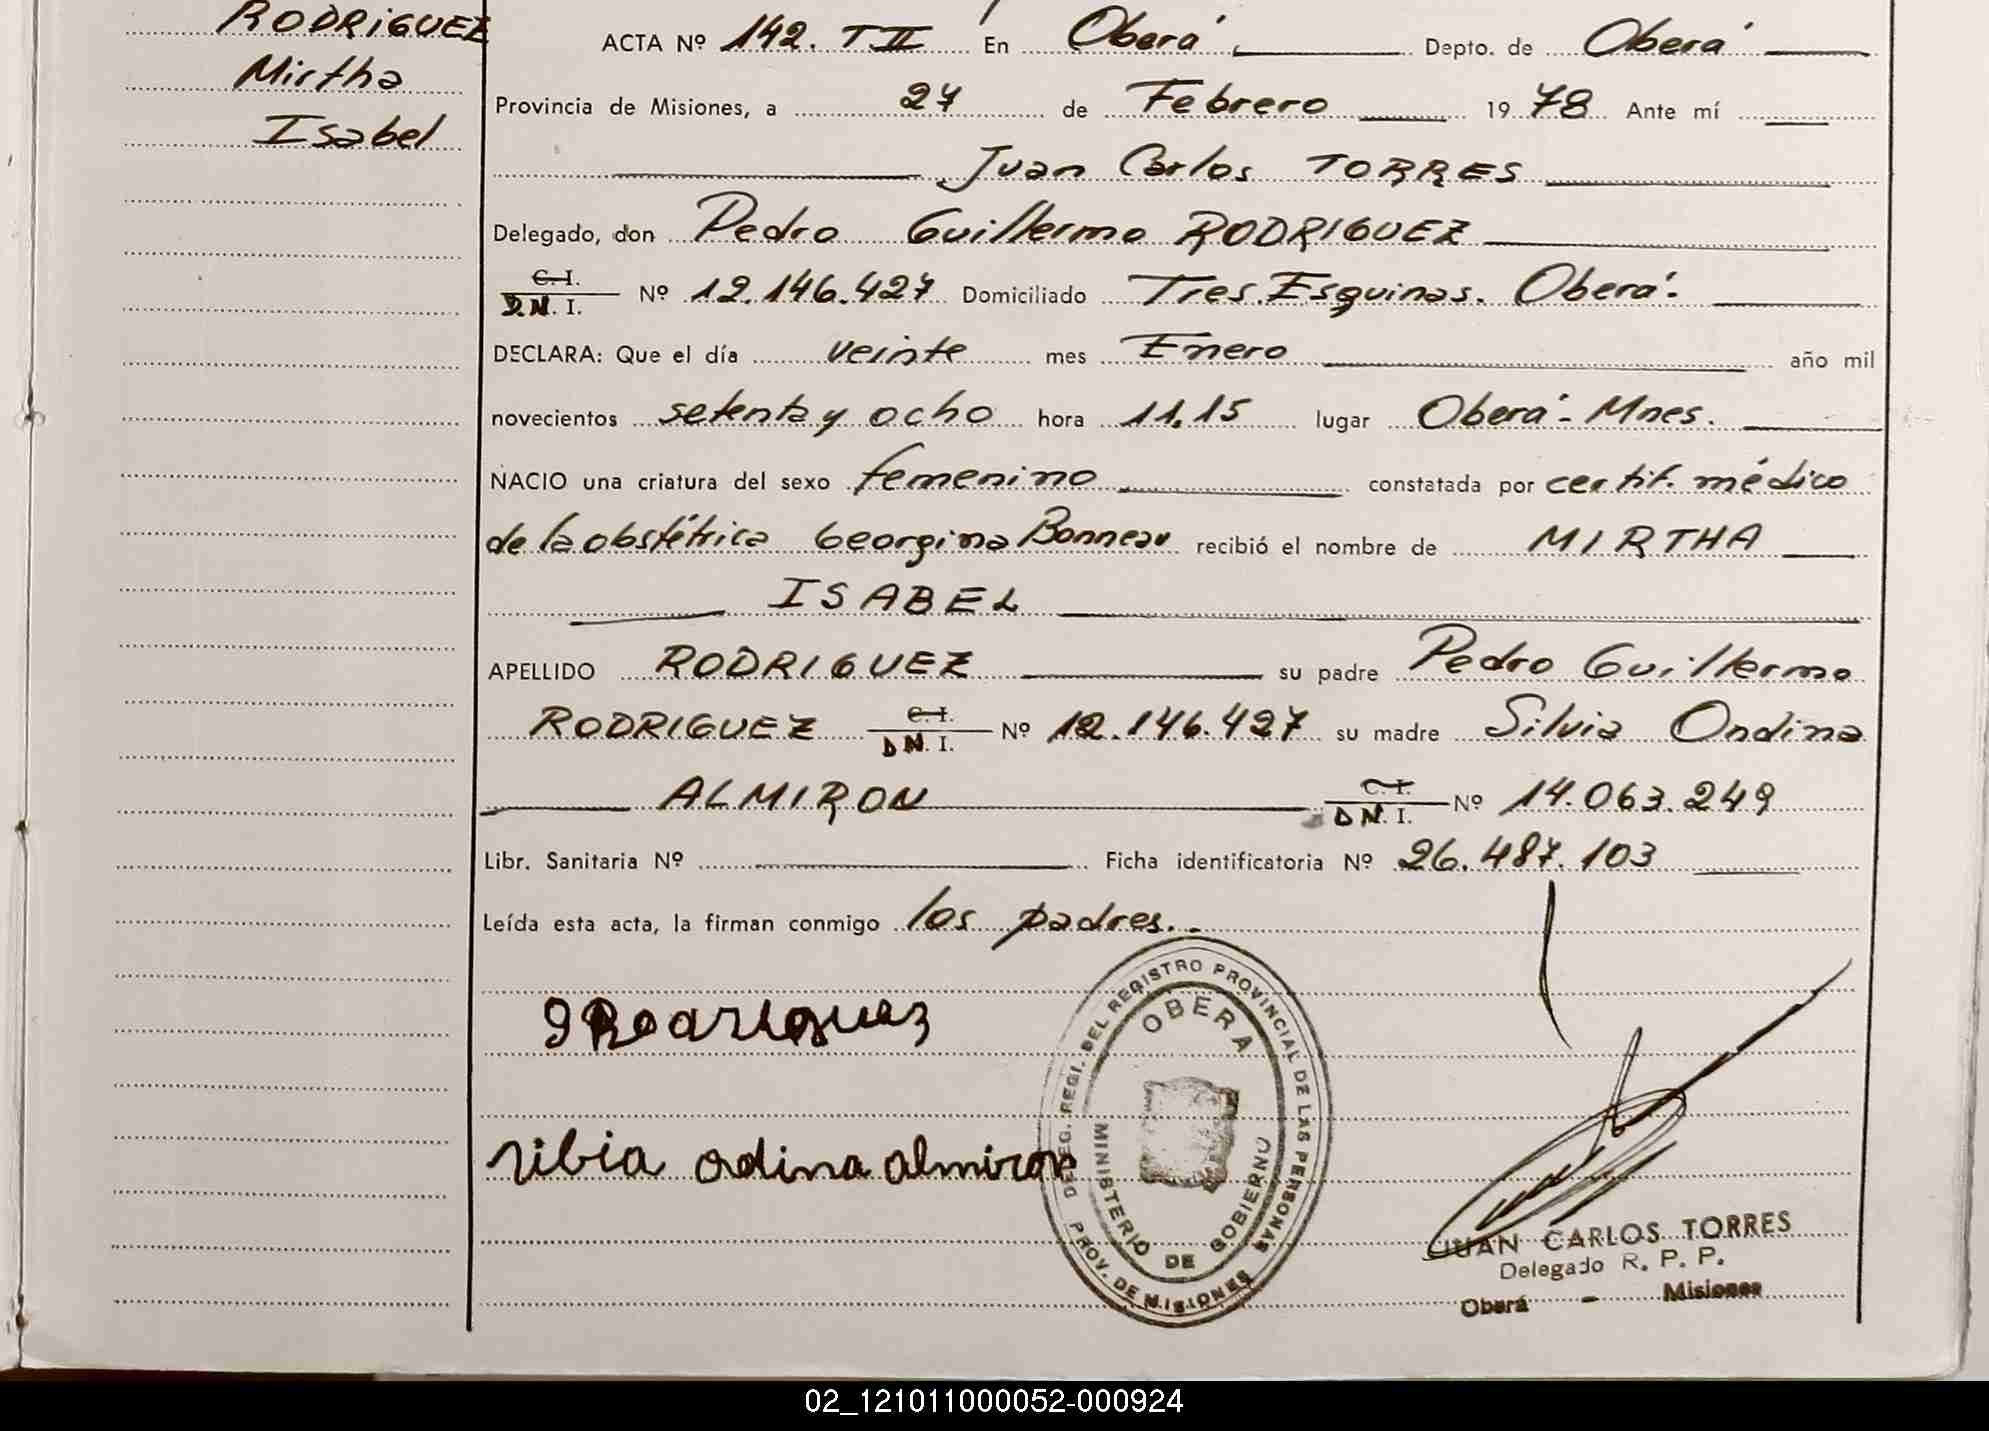 RODRIGUEZ
Mirtha
Isabel
ACTA Nº 142. T II En Oberá Depto. de Oberá
Provincia de Misiones, a 27 de Febrero 1978 Ante mí
Juan Carlos TORRES
Delegado, don Pedro Guillermo RODRIGUEZ
C. I.
D.N. I. Nº 12.146.427 Domiciliado Tres Esquinas. Oberá.
DECLARA: Que el día veinte mes Enero año mil
novecientos setenta y ocho hora 11.15 lugar Oberá - Mnes.
NACIO una criatura del sexo femenino constatada por certif. médico
de la obstétrica Georgina Bonneau recibió el nombre de MIRTHA
ISABEL
APELLIDO RODRIGUEZ su padre Pedro Guillermo
RODRIGUEZ C. I. D N. I. Nº 12.146.427 su madre Silvia Ondina
ALMIRON C. I. D N. I. Nº 14.063.249
Libr. Sanitaria Nº Ficha identificatoria Nº 26.487.103
Leída esta acta, la firman conmigo los padres.
Rodriguez
silvia ordina almiron
DELEG. REGI. DEL REGISTRO PROVINCIAL DE LAS PERSONAS
OBERA
MINISTERIO DE GOBIERNO
PROV. DE MISIONES
JUAN CARLOS TORRES
Delegado R. P. P.
Oberá - Misiones
02_121011000052-000924